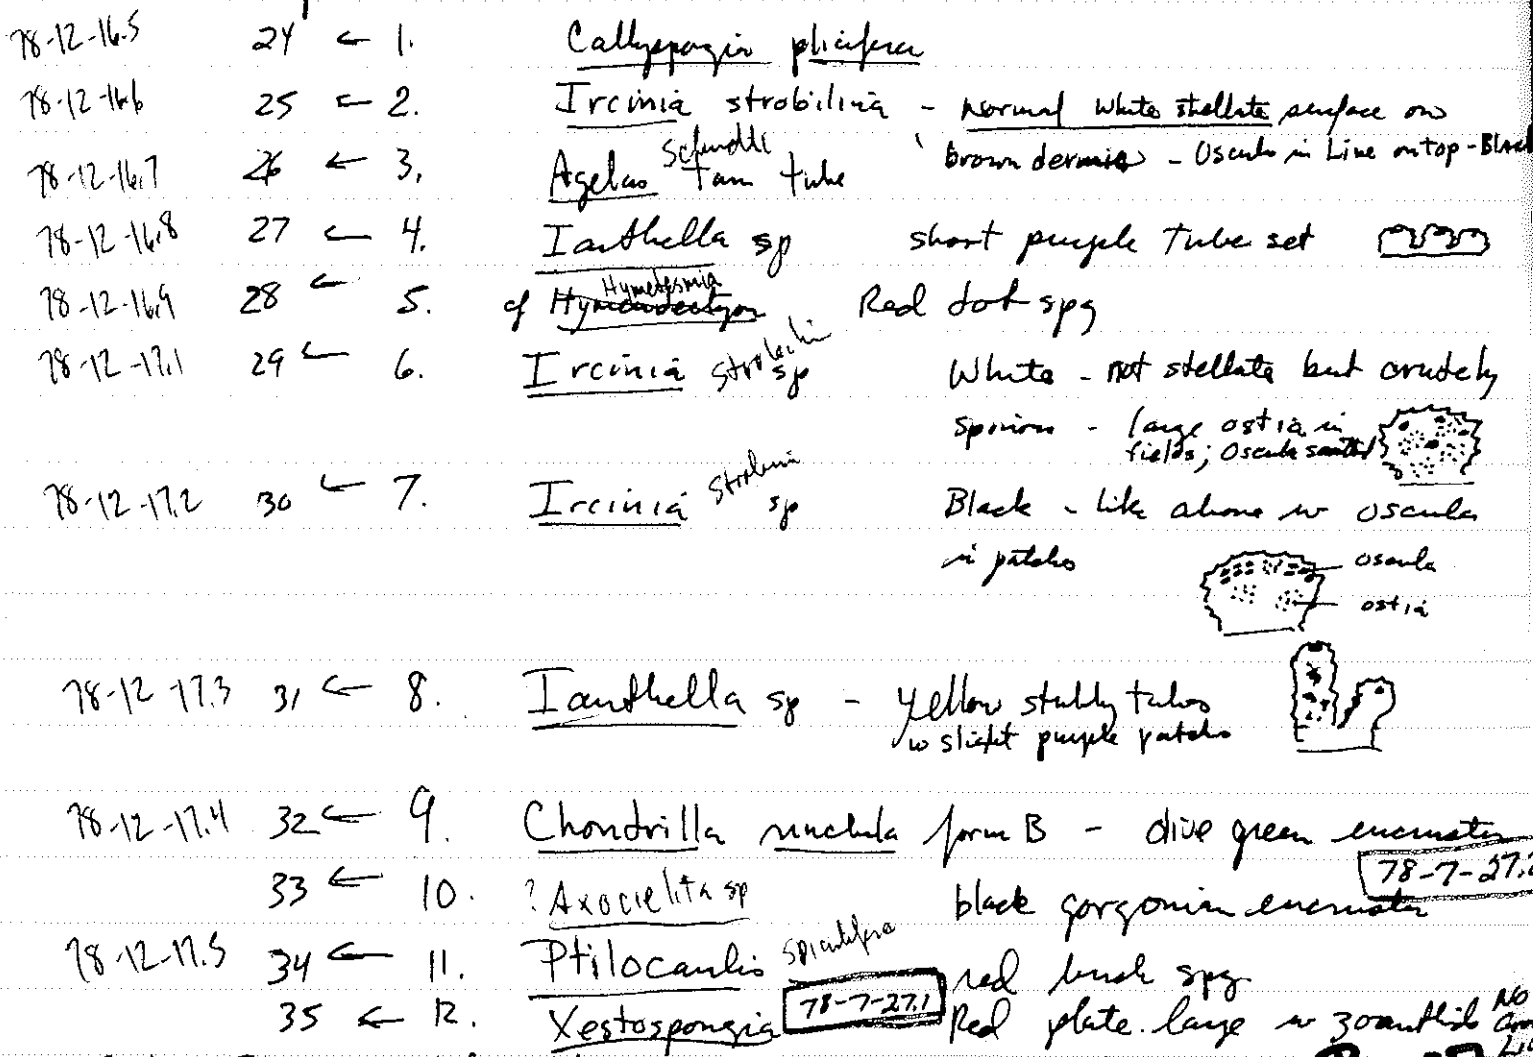 78-12-16.5 24 ← 1. Callyspongia plicifera
78-12-16.6 25 ← 2. Ircinia strobilina - Normal white stellate surface on
brown dermis - Oscula in Line on top - Black
78-12-16.7 26 ← 3. Agelas schmidti tan tube
78-12-16.8 27 ← 4. Ianthella sp short purple Tube set
78-12-16.9 28 ← 5. cf Hymedesmia Red dot spg
78-12-17.1 29 ← 6. Ircinia strobilina sp White - not stellate but crudely
spinous - large ostia in
fields; Oscula
78-12-17.2 30 ← 7. Ircinia strobilina sp Black - like above w oscula
in patches
oscula
ostia
78-12-17.3 31 ← 8. Ianthella sp - Yellow stubby tubes
w slight purple patches
78-12-17.4 32 ← 9. Chondrilla nucula form B - olive green encruster
78-7-27.2
33 ← 10. ? Axocielita sp black gorgonian encruster
78-12-17.5 34 ← 11. Ptilocaulis spiculifera red bush spg
35 ← 12. Xestospongia 78-7-27.1 Red plate. large w zoanthids NO